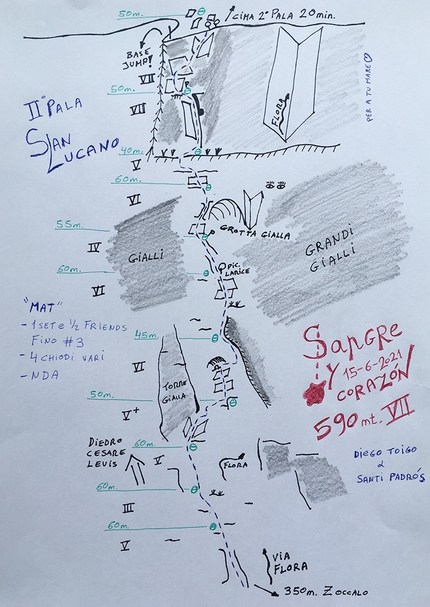 50m.
CIMA 2ª PALA 20min.
BASE
JUMP!
VII
50m.
VII
FLORA
PER A TU MARE
IIª PALA
SAN
LUCANO
40m.
V
60m.
VI
55m.
GROTTA GIALLA
IV
GIALLI
GRANDI
GIALLI
60m.
PIC.
LARICE
VI
"MAT"
- 1 SET e 1/2 FRIENDS
FINO #3
- 4 CHIODI VARI
- NDA
45m.
SANGRE
Y 15-6-2021
CORAZÓN
590 mt. VII
VI
TORRE
GIALLA
50m.
V+
DIEDRO
CESARE
LEVIS
60m.
V
FLORA
DIEGO TOIGO
&
SANTI PADRÓS
60m.
III
60m.
V
VIA
FLORA
350m. ZOCCALO